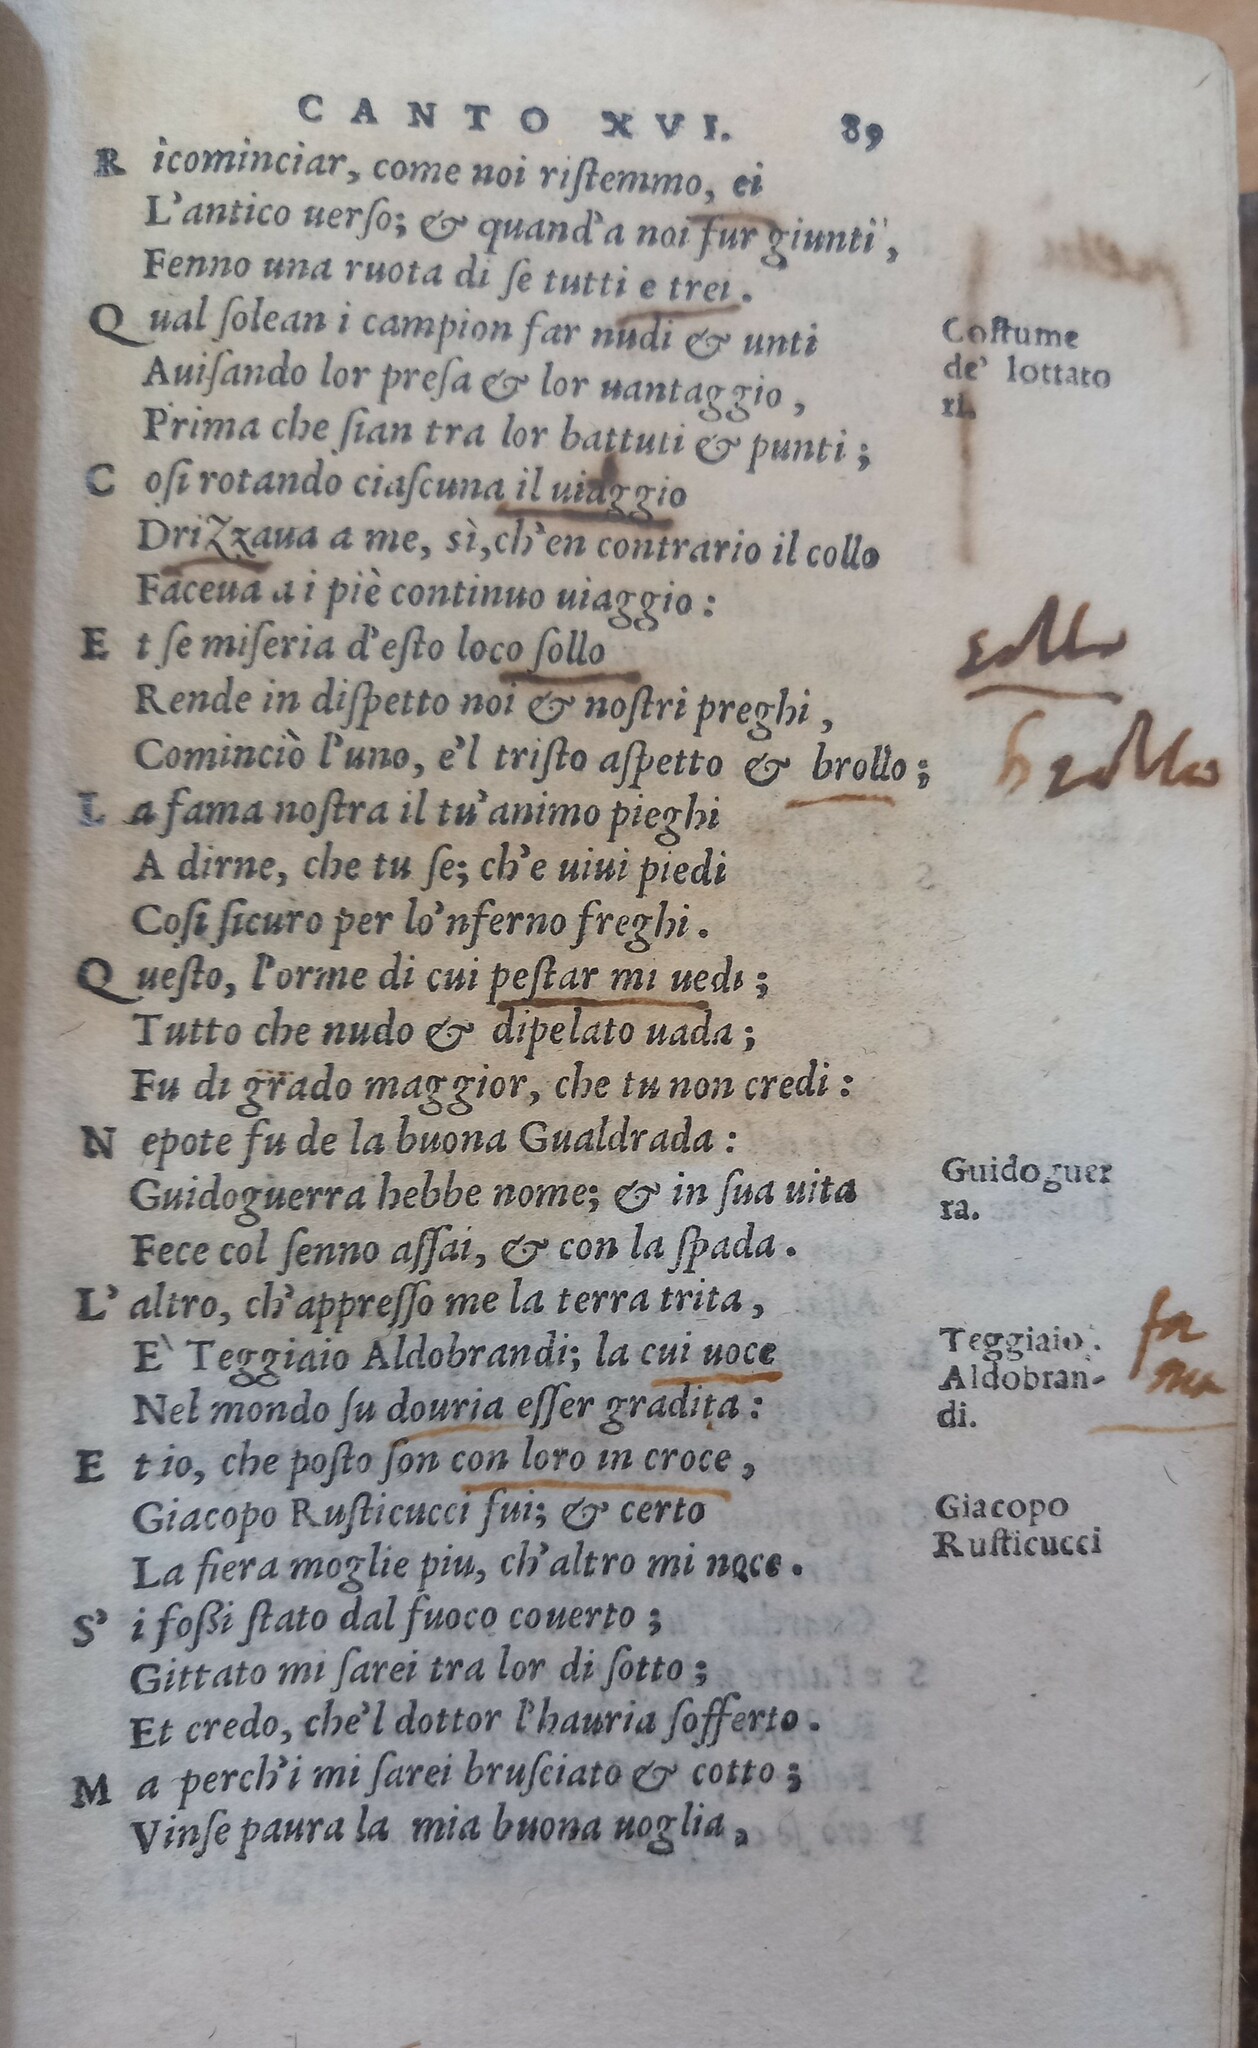 CANTO XVI. 89
Ricominciar, come noi ristemmo, ei
L'antico uerso; & quand'a noi fur giunti,
Fenno una ruota di se tutti e trei.
Qual solean i campion far nudi & unti
Costume
Auisando lor presa & lor uantaggio,
de' lottato
ri.
Prima che sian tra lor battuti & punti;
Cosi rotando ciascuna il uiaggio
Drizzaua a me, sì, ch'en contrario il collo
Faceua a i piè continuo uiaggio:
Et se miseria d'esto loco sollo
sollo
Rende in dispetto noi & nostri preghi,
Cominciò l'uno, e'l tristo aspetto & brollo;
brollo
La fama nostra il tu'animo pieghi
A dirne, che tu se; ch'e uiui piedi
Cosi sicuro per lo'nferno freghi.
Questo, l'orme di cui pestar mi uedi;
Tutto che nudo & dipelato uada;
Fu di grado maggior, che tu non credi:
Nepote fu de la buona Gualdrada:
Guidoguer
ra.
Guidoguerra hebbe nome; & in sua uita
Fece col senno assai, & con la spada.
L'altro, ch'appresso me la terra trita,
È Teggiaio Aldobrandi; la cui uoce
Teggiaio
Aldobran-
di.
fa
ma
Nel mondo su douria esser gradita:
Et io, che posto son con loro in croce,
Giacopo Rusticucci fui; & certo
Giacopo
Rusticucci
La fiera moglie piu, ch'altro mi noce.
S'i fossi stato dal fuoco couerto;
Gittato mi sarei tra lor di sotto;
Et credo, che'l dottor l'hauria sofferto.
Ma perch'i mi sarei brusciato & cotto;
Vinse paura la mia buona uoglia,